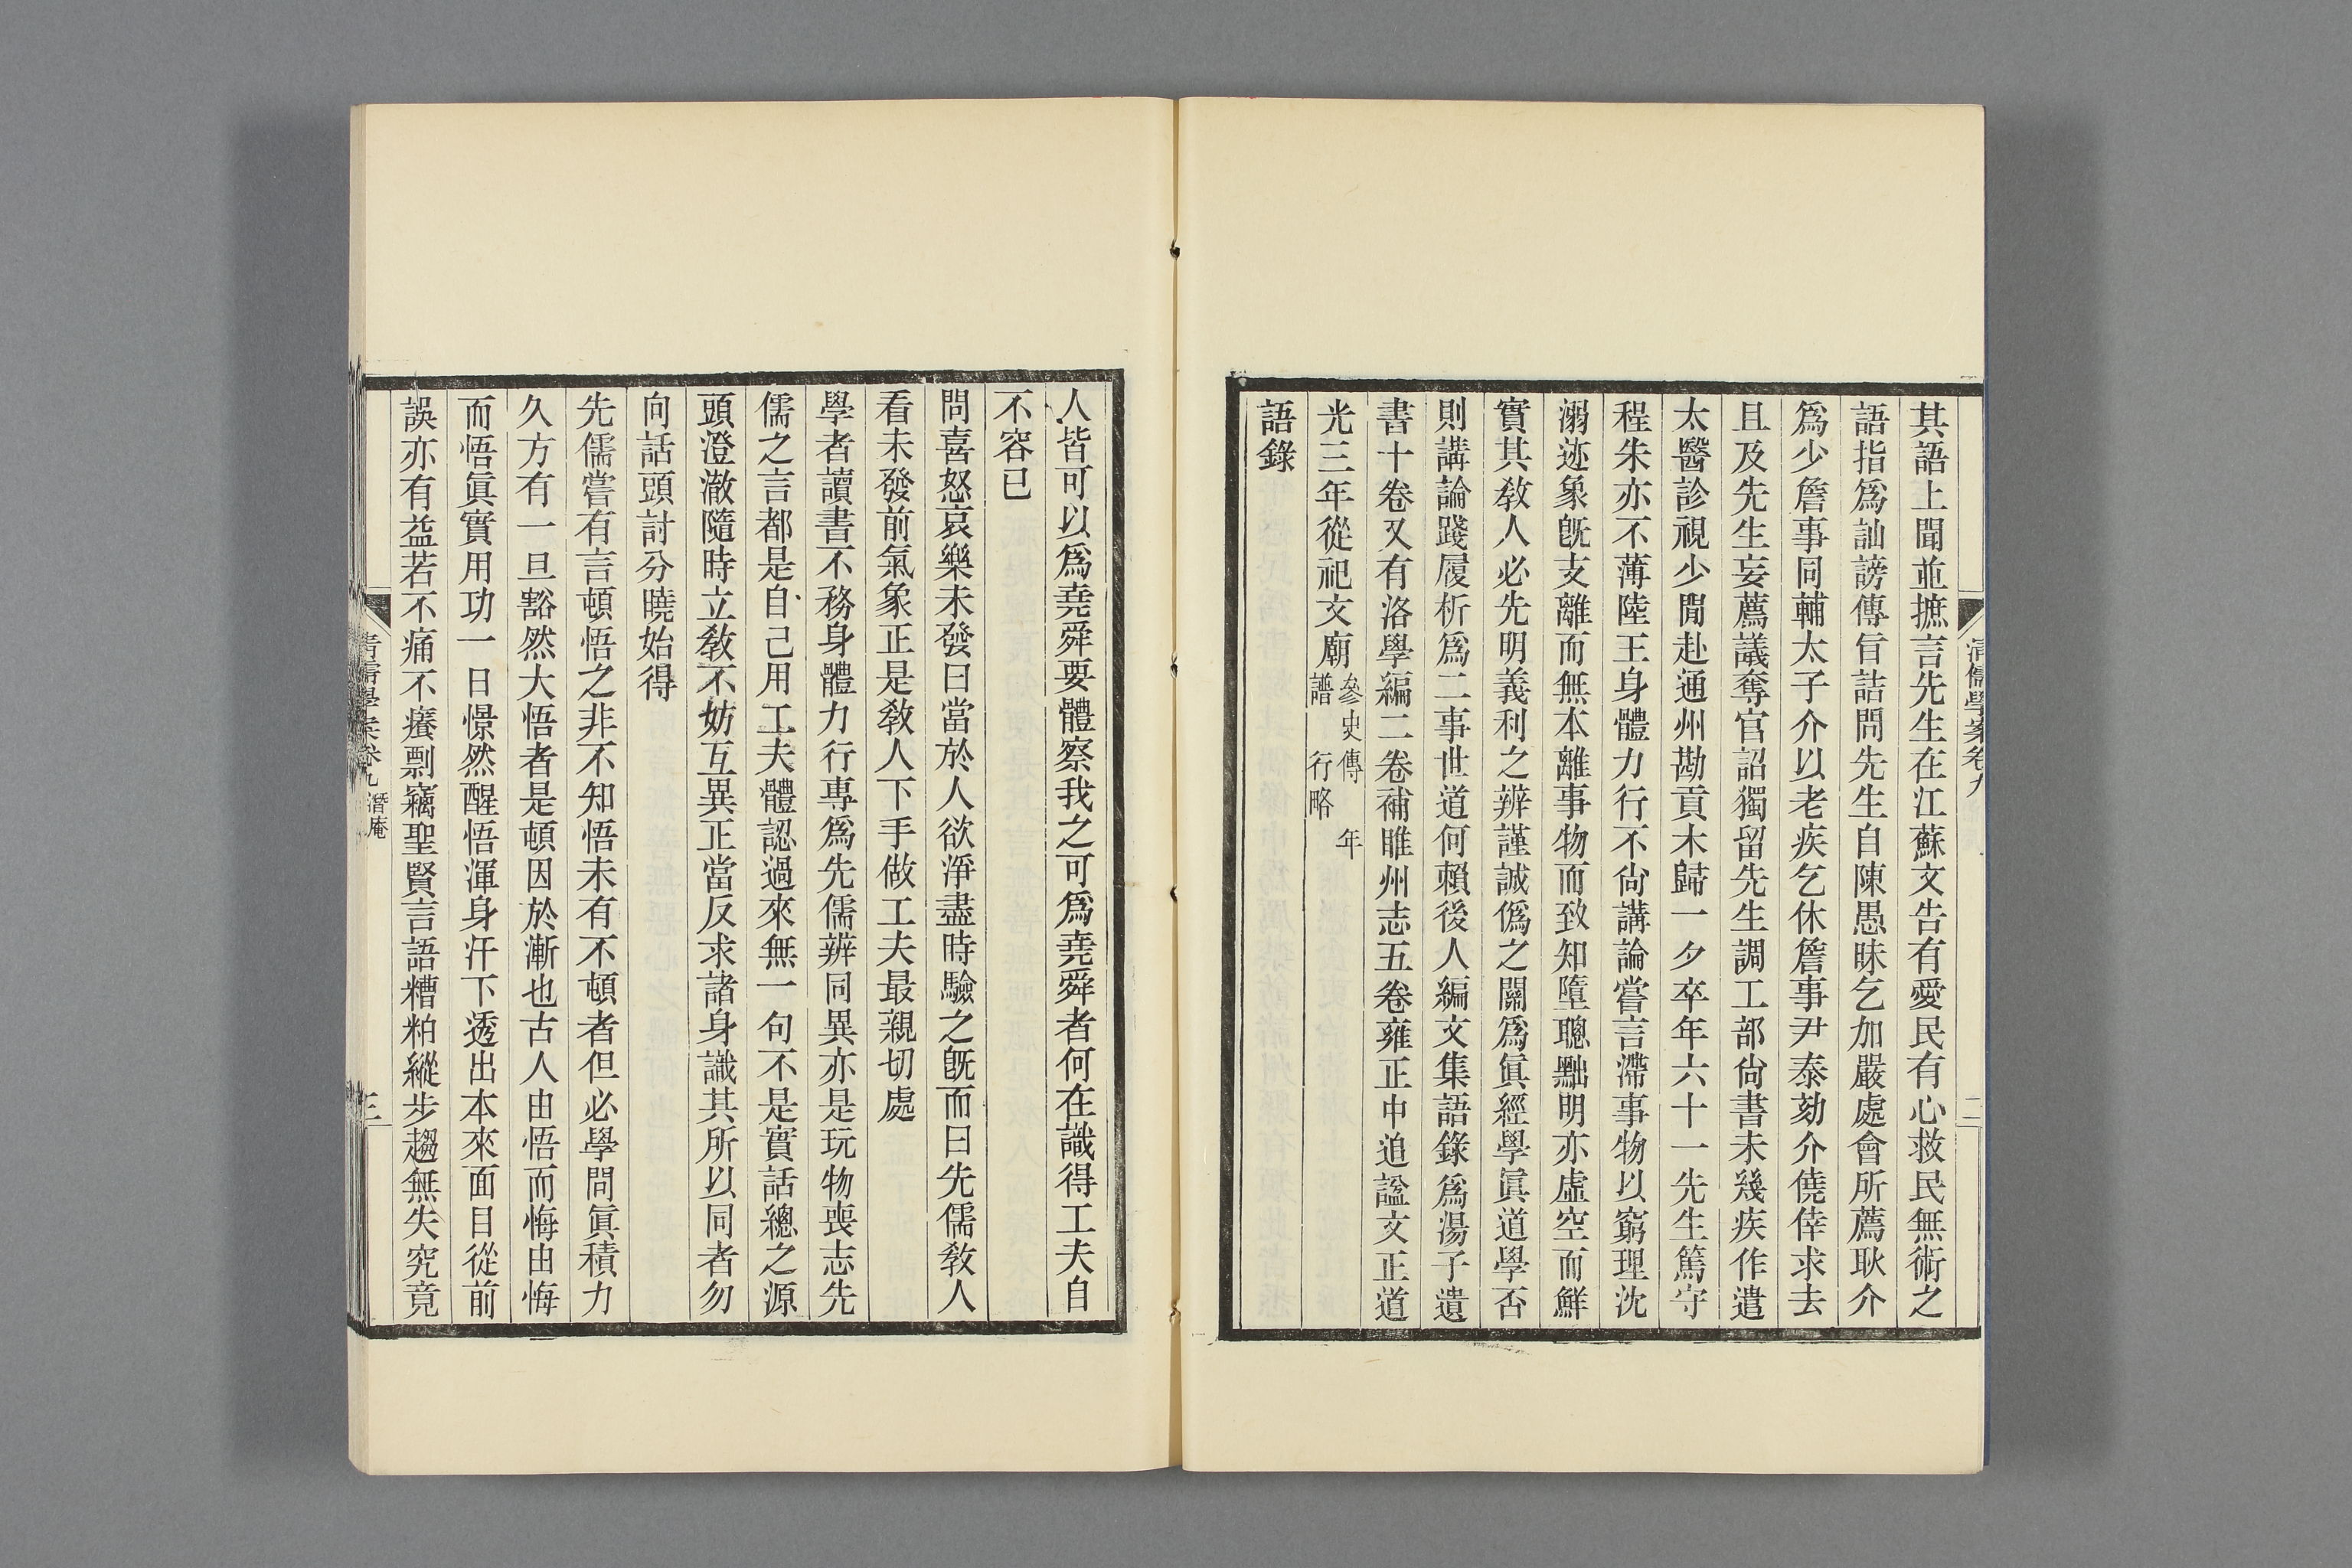 清儒學案卷九
二
其語上聞並摭言先生在江蘇文告有愛民有心救民無術之
語指爲訕謗傳旨詰問先生自陳愚昧乞加嚴處會所薦耿介
爲少詹事同輔太子介以老疾乞休詹事尹泰劾介僥倖求去
且及先生妄薦議奪官詔獨留先生調工部尙書未幾疾作遣
太醫診視少閒赴通州勘貢木歸一夕卒年六十一先生篤守
程朱亦不薄陸王身體力行不尙講論嘗言滯事物以窮理沈
溺迹象旣支離而無本離事物而致知墮聰黜明亦虛空而鮮
實其敎人必先明義利之辨謹誠僞之關爲眞經學眞道學否
則講論踐履析爲二事世道何賴後人編文集語錄爲湯子遺
書十卷又有洛學編二卷補睢州志五卷雍正中追諡文正道
光三年從祀文廟參史傳 年譜 行略
語錄
人皆可以爲堯舜要體察我之可爲堯舜者何在識得工夫自
不容已
問喜怒哀樂未發曰當於人欲淨盡時驗之旣而曰先儒敎人
看未發前氣象正是敎人下手做工夫最親切處
學者讀書不務身體力行專爲先儒辨同異亦是玩物喪志先
儒之言都是自己用工夫體認過來無一句不是實話總之源
頭澄澈隨時立敎不妨互異正當反求諸身識其所以同者勿
向話頭討分曉始得
先儒嘗有言頓悟之非不知悟未有不頓者但必學問眞積力
久方有一旦豁然大悟者是頓因於漸也古人由悟而悔由悔
而悟眞實用功一日憬然醒悟渾身汗下透出本來面目從前
誤亦有益若不痛不癢剽竊聖賢言語糟粕縱步趨無失究竟
清儒學案卷九 潛庵
三